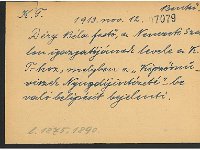 Benkő
K. T.
1913. nov. 12. 07079
Déry Béla festő, a Nemzeti Sza-
lon igazgatójának levele a K.
T.-hoz, melyben a "Képzőmű-
vészek Nyugdíjintézeté"-be
való belépését bejelenti.
l. 1875, 1890